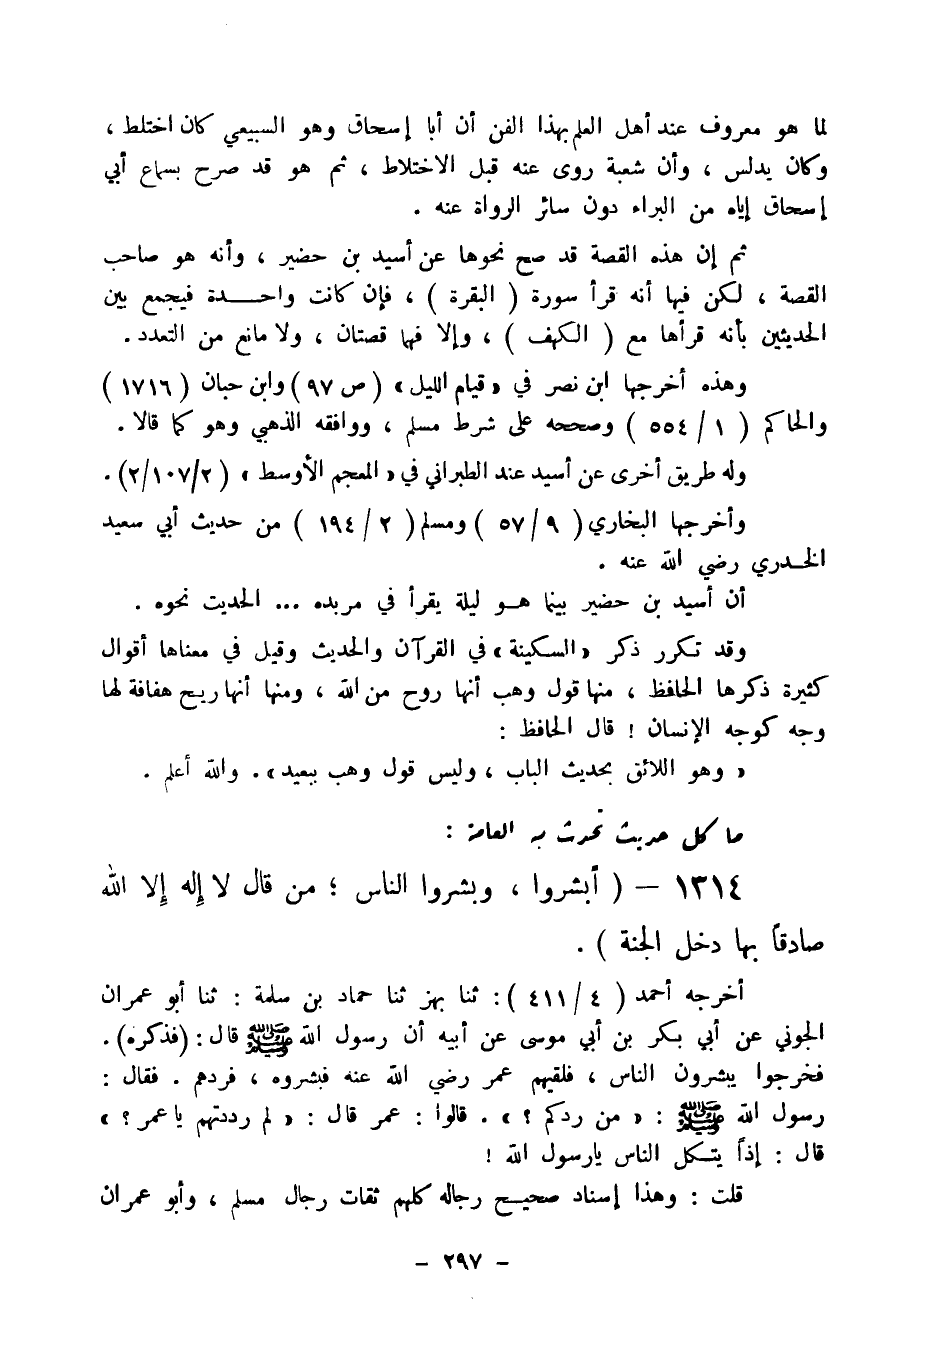 لما هو معروف عند أهل العلم بهذا الفن أن أبا إسحاق وهو السبيعي كان اختلط ،
وكان يدلس ، وأن شعبة روى عنه قبل الاختلاط ، ثم هو قد صرح بسماع أبي
إسحاق إياه من البراء دون سائر الرواة عنه .
ثم إن هذه القصة قد صح نحوها عن أسيد بن حضير ، وأنه هو صاحب
القصة ، لكن فيها أنه قرأ سورة ( البقرة ) ، فإن كانت واحـــدة فيجمع بين
الحديثين بأنه قرأها مع ( الكهف ) ، وإلا فها قصتان ، ولا مانع من التعدد .
وهذه أخرجها ابن نصر في « قيام الليل » ( ص ٩٧ ) وابن حبان ( ١٧١٦ )
والحاكم ( ١ / ٥٥٤ ) وصححه على شرط مسلم ، ووافقه الذهبي وهو كما قالا .
وله طريق أخرى عن أسيد عند الطبراني في « المعجم الأوسط » ( ٢/١٠٧/٢ ) .
وأخرجها البخاري ( ٩ / ٥٧ ) ومسلم ( ٢ / ١٩٤ ) من حديث أبي سعيد
الخـدري رضي الله عنه .
أن أسيد بن حضير بينما هــو ليلة يقرأ في مربده ... الحديث نحوه .
وقد تكرر ذكر « السكينة » في القرآن والحديث وقيل في معناها أقوال
كثيرة ذكرها الحافظ ، منها قول وهب أنها روح من الله ، ومنها أنها ريح هفافة لها
وجه كوجه الإنسان ! قال الحافظ :
« وهو اللائق بحديث الباب ، وليس قول وهب ببعيد » . والله أعلم .
ما كل حديث تحدث به العامة :
١٣١٤ – ( أبشروا ، وبشروا الناس ؛ من قال لا إله إلا الله
صادقاً بها دخل الجنة ) .
أخرجه أحمد ( ٤ / ٤١١ ) : ثنا بهز ثنا حماد بن سلمة : ثنا أبو عمران
الجوني عن أبي بكر بن أبي موسى عن أبيه أن رسول الله ﷺ قال : (فذكره) .
فخرجوا يبشرون الناس ، فلقيهم عمر رضي الله عنه فبشروه ، فردهم . فقال :
رسول الله ﷺ : « من ردكم ؟ » . قالوا : عمر قال : « لم رددتهم يا عمر ؟ »
قال : إذاً يتكل الناس يارسول الله !
قلت : وهذا إسناد صحيح رجاله كلهم ثقات رجال مسلم ، وأبو عمران
– ٢٩٧ –